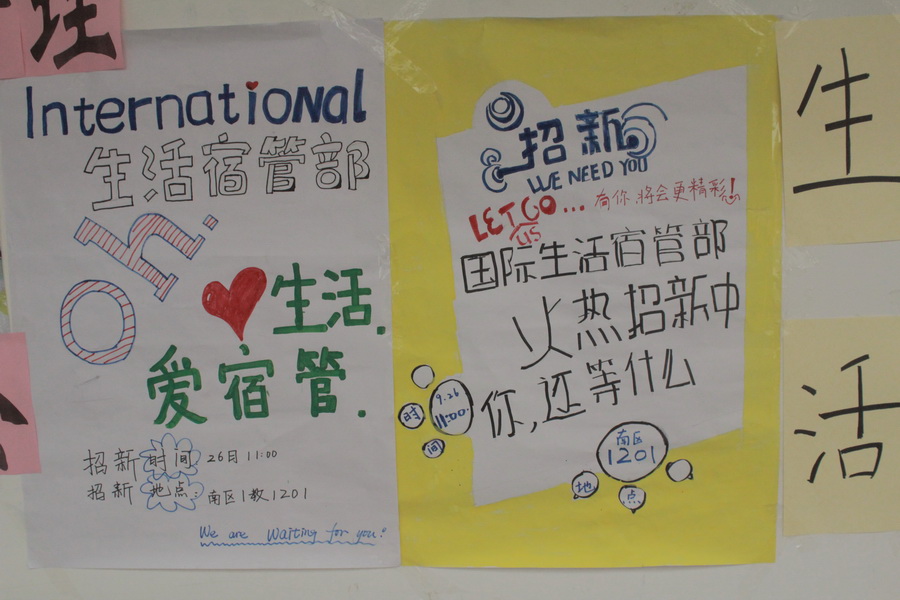 理
International
生活宿管部
Oh.
生活.
爱宿管.
招新时间 26日 11:00
招新地点: 南区1教1201
We are Waiting for you!
招新
WE NEED YOU
LET US GO... 有你.将会更精彩!
国际生活宿管部
火热招新中
你,还等什么
时间
9.26
11:00.
南区
1201
地点
生
活